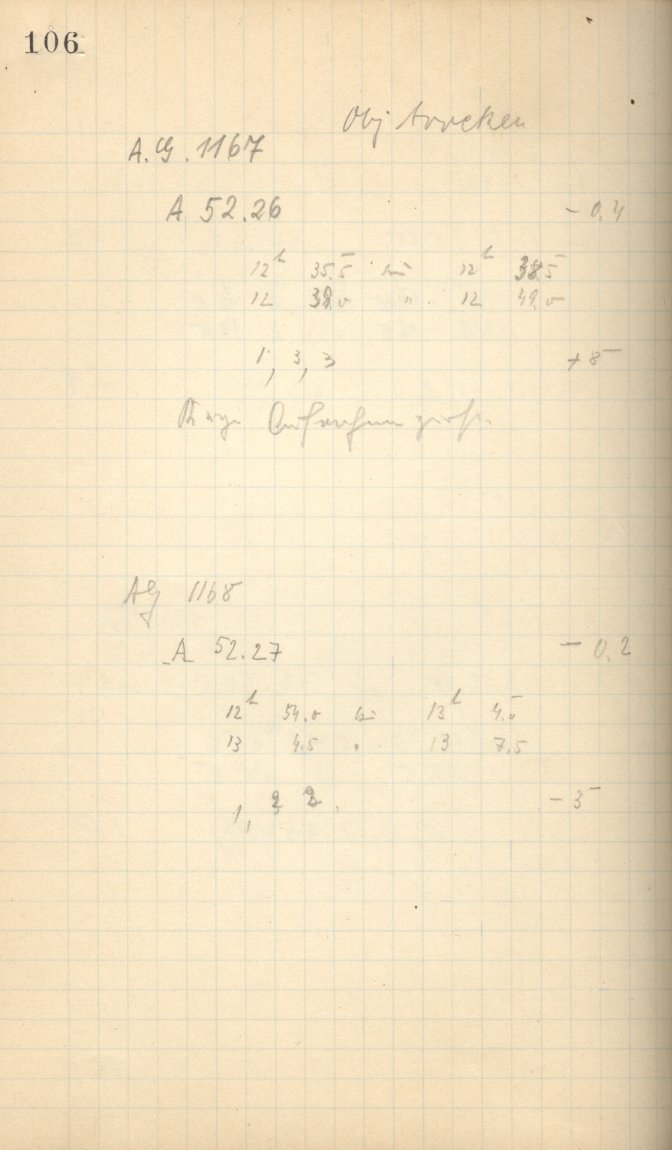 106
Obj trocken
A.G. 1167
A 52.26 - 0,4
12h 35.5 bis 12h 38.5
12 39.0 " 12 49.0
1, 3, 3 + 8
AG 1168
A 52.27 - 0.2
12h 54.0 bis 13h 4.0
13 4.5 " 13 7.5
1, 2 2, - 3